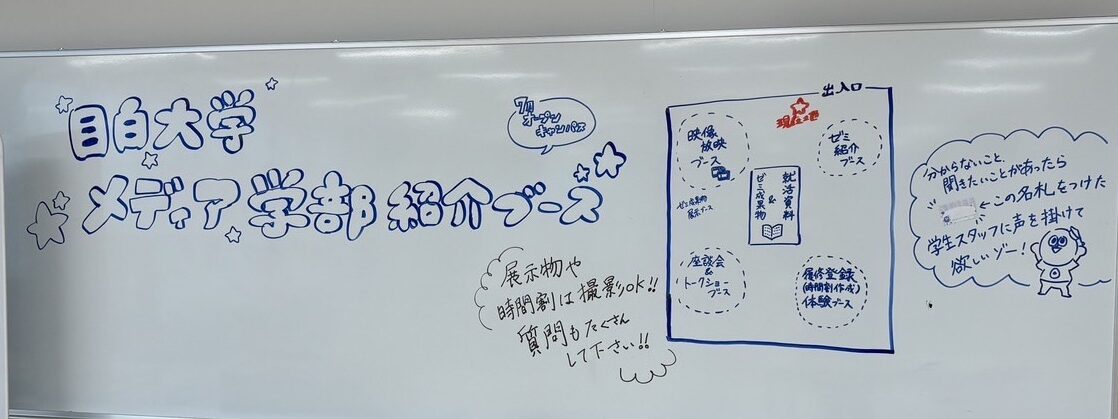 目白大学
メディア学部 紹介ブース
7月
オープン
キャンパス
展示物や
時間割は撮影OK!!
質問もたくさん
して下さい!!
出入口
現在地
映像
放映
ブース
ゼミ
紹介
ブース
就活資料
&
ゼミ成果物
ゼミ成果物
展示ブース
座談会
&
トークショー
ブース
履修登録
(時間割作成)
体験ブース
分からないこと、
聞きたいことがあったら
←この名札をつけた
学生スタッフに声を掛けて
欲しいゾー!